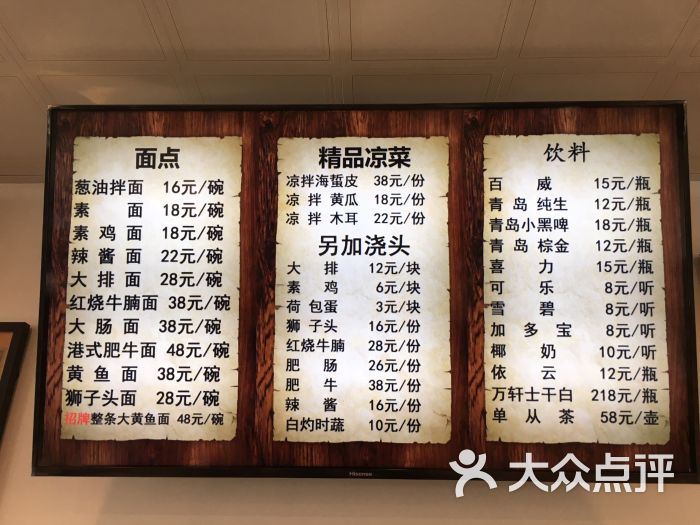 面点
葱油拌面 16元/碗
素面 18元/碗
素鸡面 18元/碗
辣酱面 22元/碗
大排面 28元/碗
红烧牛腩面 38元/碗
大肠面 38元/碗
港式肥牛面 48元/碗
黄鱼面 38元/碗
狮子头面 28元/碗
招牌整条大黄鱼面 48元/碗
精品凉菜
凉拌海蜇皮 38元/份
凉拌黄瓜 18元/份
凉拌木耳 22元/份
另加浇头
大排 12元/块
素鸡 6元/块
荷包蛋 3元/块
狮子头 16元/份
红烧牛腩 28元/份
肥肠 26元/份
肥牛 38元/份
辣酱 16元/份
白灼时蔬 10元/份
饮料
百威 15元/瓶
青岛纯生 12元/瓶
青岛小黑啤 18元/瓶
青岛棕金 12元/瓶
喜力 15元/瓶
可乐 8元/听
雪碧 8元/听
加多宝 8元/听
椰奶 10元/听
依云 12元/瓶
万轩士干白 218元/瓶
单从茶 58元/壶
Hisense
大众点评